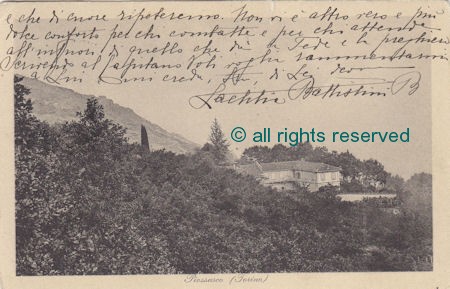 e che di cuore ripeteremo. Non vi è altro vero e più
dolce conforto pel chi combatte e per chi attende
all'infuori di quello che dà la Fede e la preghiera
Scrivendo al Capitano voli roghi rammentarmi
a Lui. Mi creda, di Lei dev
Laetitia Battistini B
© all rights reserved
Piossasco (Torino)